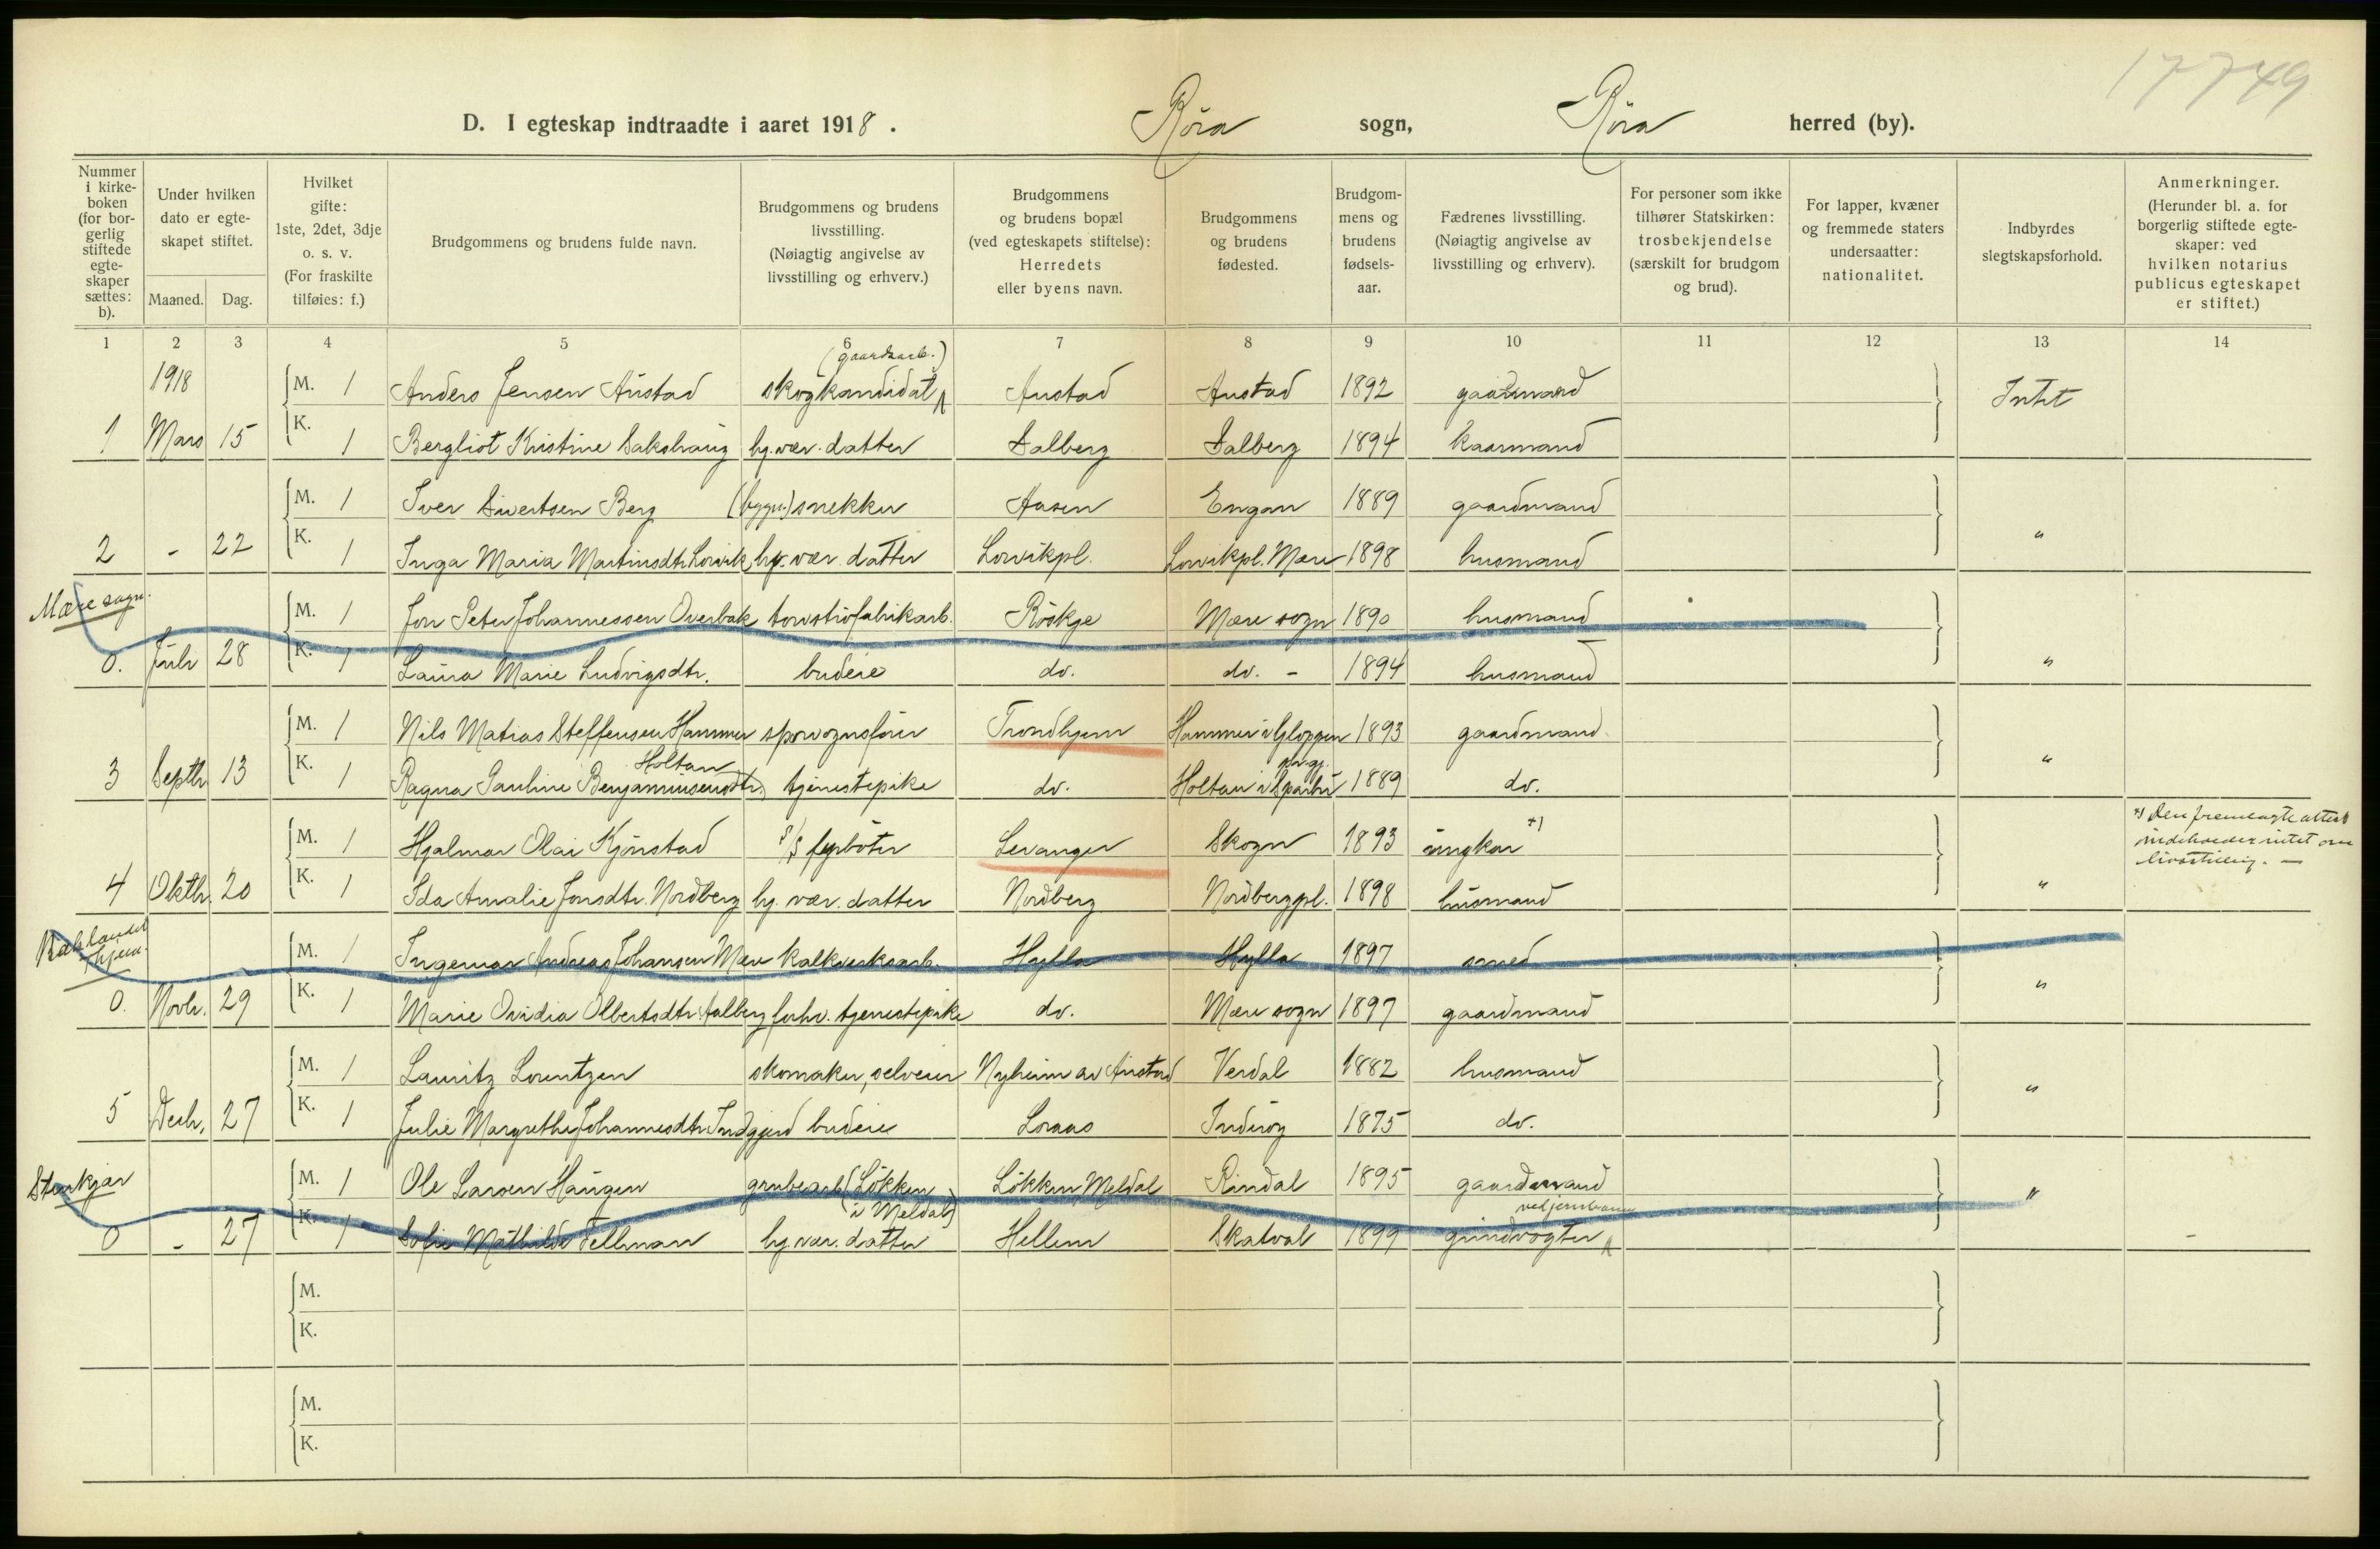 17749
D. I egteskap indtraadte i aaret 1918. Röra sogn, Röra herred (by).
Nummer i kirke-boken (for bor-gerlig stiftede egte-skaper sættes: b).
Under hvilken dato er egte-skapet stiftet.
Maaned. Dag.
Hvilket gifte: 1ste, 2det, 3dje o. s. v. (For fraskilte tilføies: f.)
Brudgommens og brudens fulde navn.
Brudgommens og brudens livsstilling. (Nøiagtig angivelse av livsstilling og erhverv.)
Brudgommens og brudens bopæl (ved egteskapets stiftelse): Herredets eller byens navn.
Brudgommens og brudens fødested.
Brudgom-mens og brudens fødsels-aar.
Fædrenes livsstilling. (Nøiagtig angivelse av livsstilling og erhverv).
For personer som ikke tilhører Statskirken: trosbekjendelse (særskilt for brudgom og brud).
For lapper, kvæner og fremmede staters undersaatter: nationalitet.
Indbyrdes slegtskapsforhold.
Anmerkninger. (Herunder bl. a. for borgerlig stiftede egte-skaper: ved hvilken notarius publicus egteskapet er stiftet.)
1 2 3 4 5 6 7 8 9 10 11 12 13 14
(gaardsarb.)
1918 M. 1 Anders Jensen Austad skogkandidat Austad Austad 1892 gaardmand Intet
1 Mars 15 K. 1 Bergliot Kristine Sakshaug hj. vær. datter Salberg Salberg 1894 kaarmand
M. 1 Iver Sivertsen Berg (bygn.) snekker Aasen Engan 1889 gaardmand
2 - 22 K. 1 Inga Maria Martinsdtr. Lorvik hj. vær. datter Lorvikpl. Lorvikpl. Mære 1898 husmand "
Mære sogn.
M. 1 Jon Peter Johannessen Overbak torvströfabrikarb. Röskje Mære sogn 1890 husmand
0. Juli 28 K. 1 Laura Marie Ludvigsdtr. budeie do. do. - 1894 husmand "
M. 1 Nils Matias Steffensen Hammer sporvognsförer Trondhjem Hammer i Gloppen 1893 gaardmand
Holtan
3 Septbr 13 K. 1 Ragna Pauline Benjaminsensdtr. tjenestepike do. Holtan i Sparbu prgj. 1889 do. "
M. 1 Hjalmar Olai Kjönstad S/S fyrböter Levanger Skogn 1893 ungkar *)
*) Den fremlagte attest indeholder intet om livsstilling. -
4 Oktbr. 20 K. 1 Ida Amalie Jonsdtr. Nordberg hj. vær. datter Nordberg Nordbergpl. 1898 husmand "
M. 1 Ingemar Andreas Johansen Mære kalkverksarb. Hylla Hylla 1897 smed
0. Novbr. 29 K. 1 Marie Ovidia Olbertsdtr. Aalberg forhv. tjenestepike do. Mære sogn 1897 gaardmand "
M. 1 Lauritz Lorentzen skomaker, selveier Nyheim av Austad Verdal 1882 husmand
5 Decbr. 27 K. 1 Julie Margrethe Johannesdtr. Indgjerd budeie Loraas Inderöy 1875 do. "
Stenkjær
M. 1 Ole Larsen Haugen grubearb. (Lökken i Meldal) Lökken, Meldal Rindal 1895 gaardmand "
ved jernbanen
0 - 27 K. 1 Sofie Mathilde Tellman hj. vær. datter Hellem Skatval 1899 grindvogter
M.
K.
M.
K.